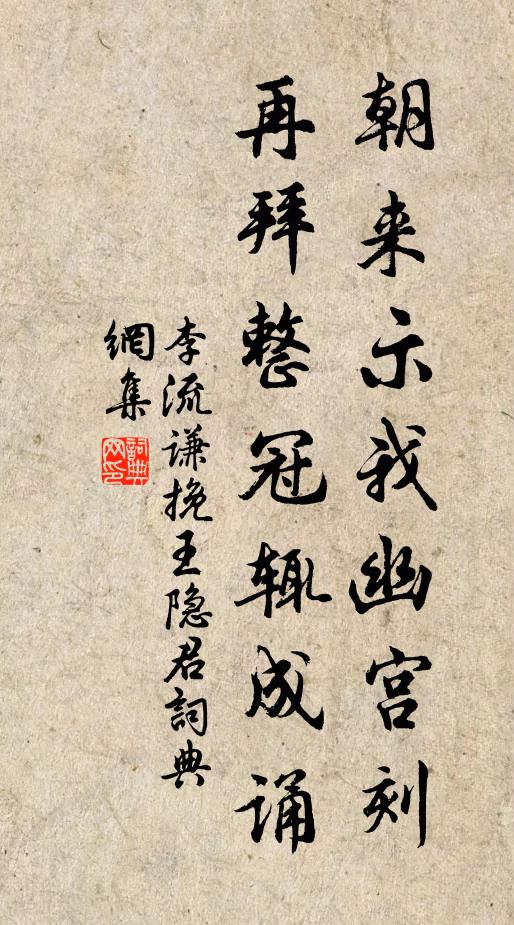 朝来示我幽宫刻
再拜整冠辄成诵
李流谦挽王隐君詞典
網集
詞典
网印